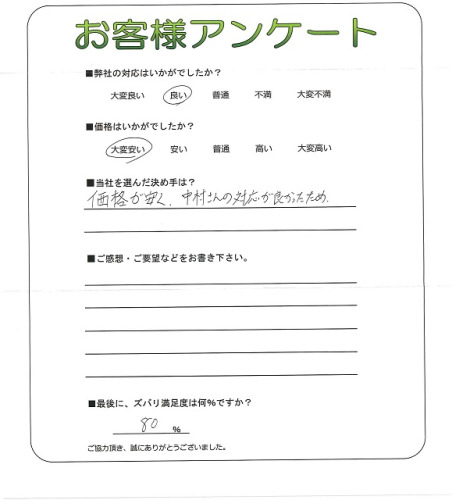 お客様アンケート
■弊社の対応はいかがでしたか？
大変良い 良い 普通 不満 大変不満
■価格はいかがでしたか？
大変安い 安い 普通 高い 大変高い
■当社を選んだ決め手は？
価格が安く、中村さんの対応が良かったため.
■ご感想・ご要望などをお書き下さい。
■最後に、ズバリ満足度は何%ですか？
80 %
ご協力頂き、誠にありがとうございました。